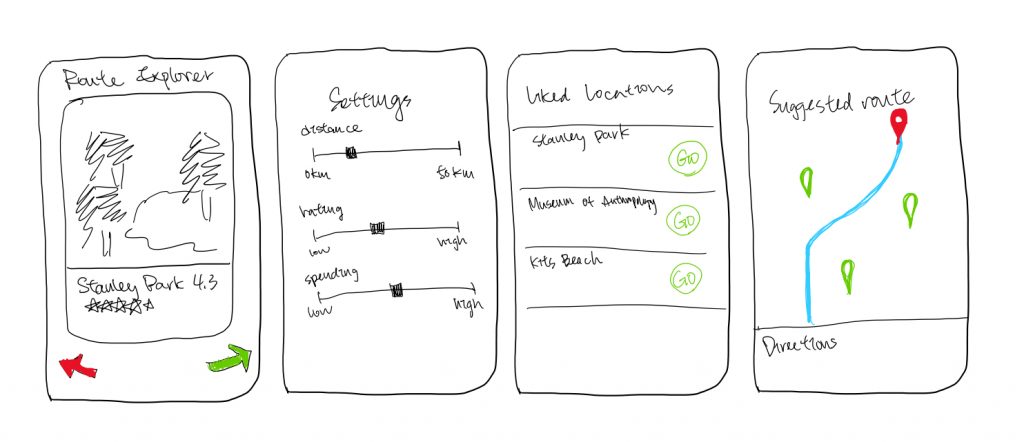 Route Explorer
Stanley Park 4.3
Settings
distance
0km 50km
rating
low high
spending
low high
Liked Locations
Stanley Park
GO
Museum of Anthropology
GO
Kits Beach
GO
Suggested route
Directions